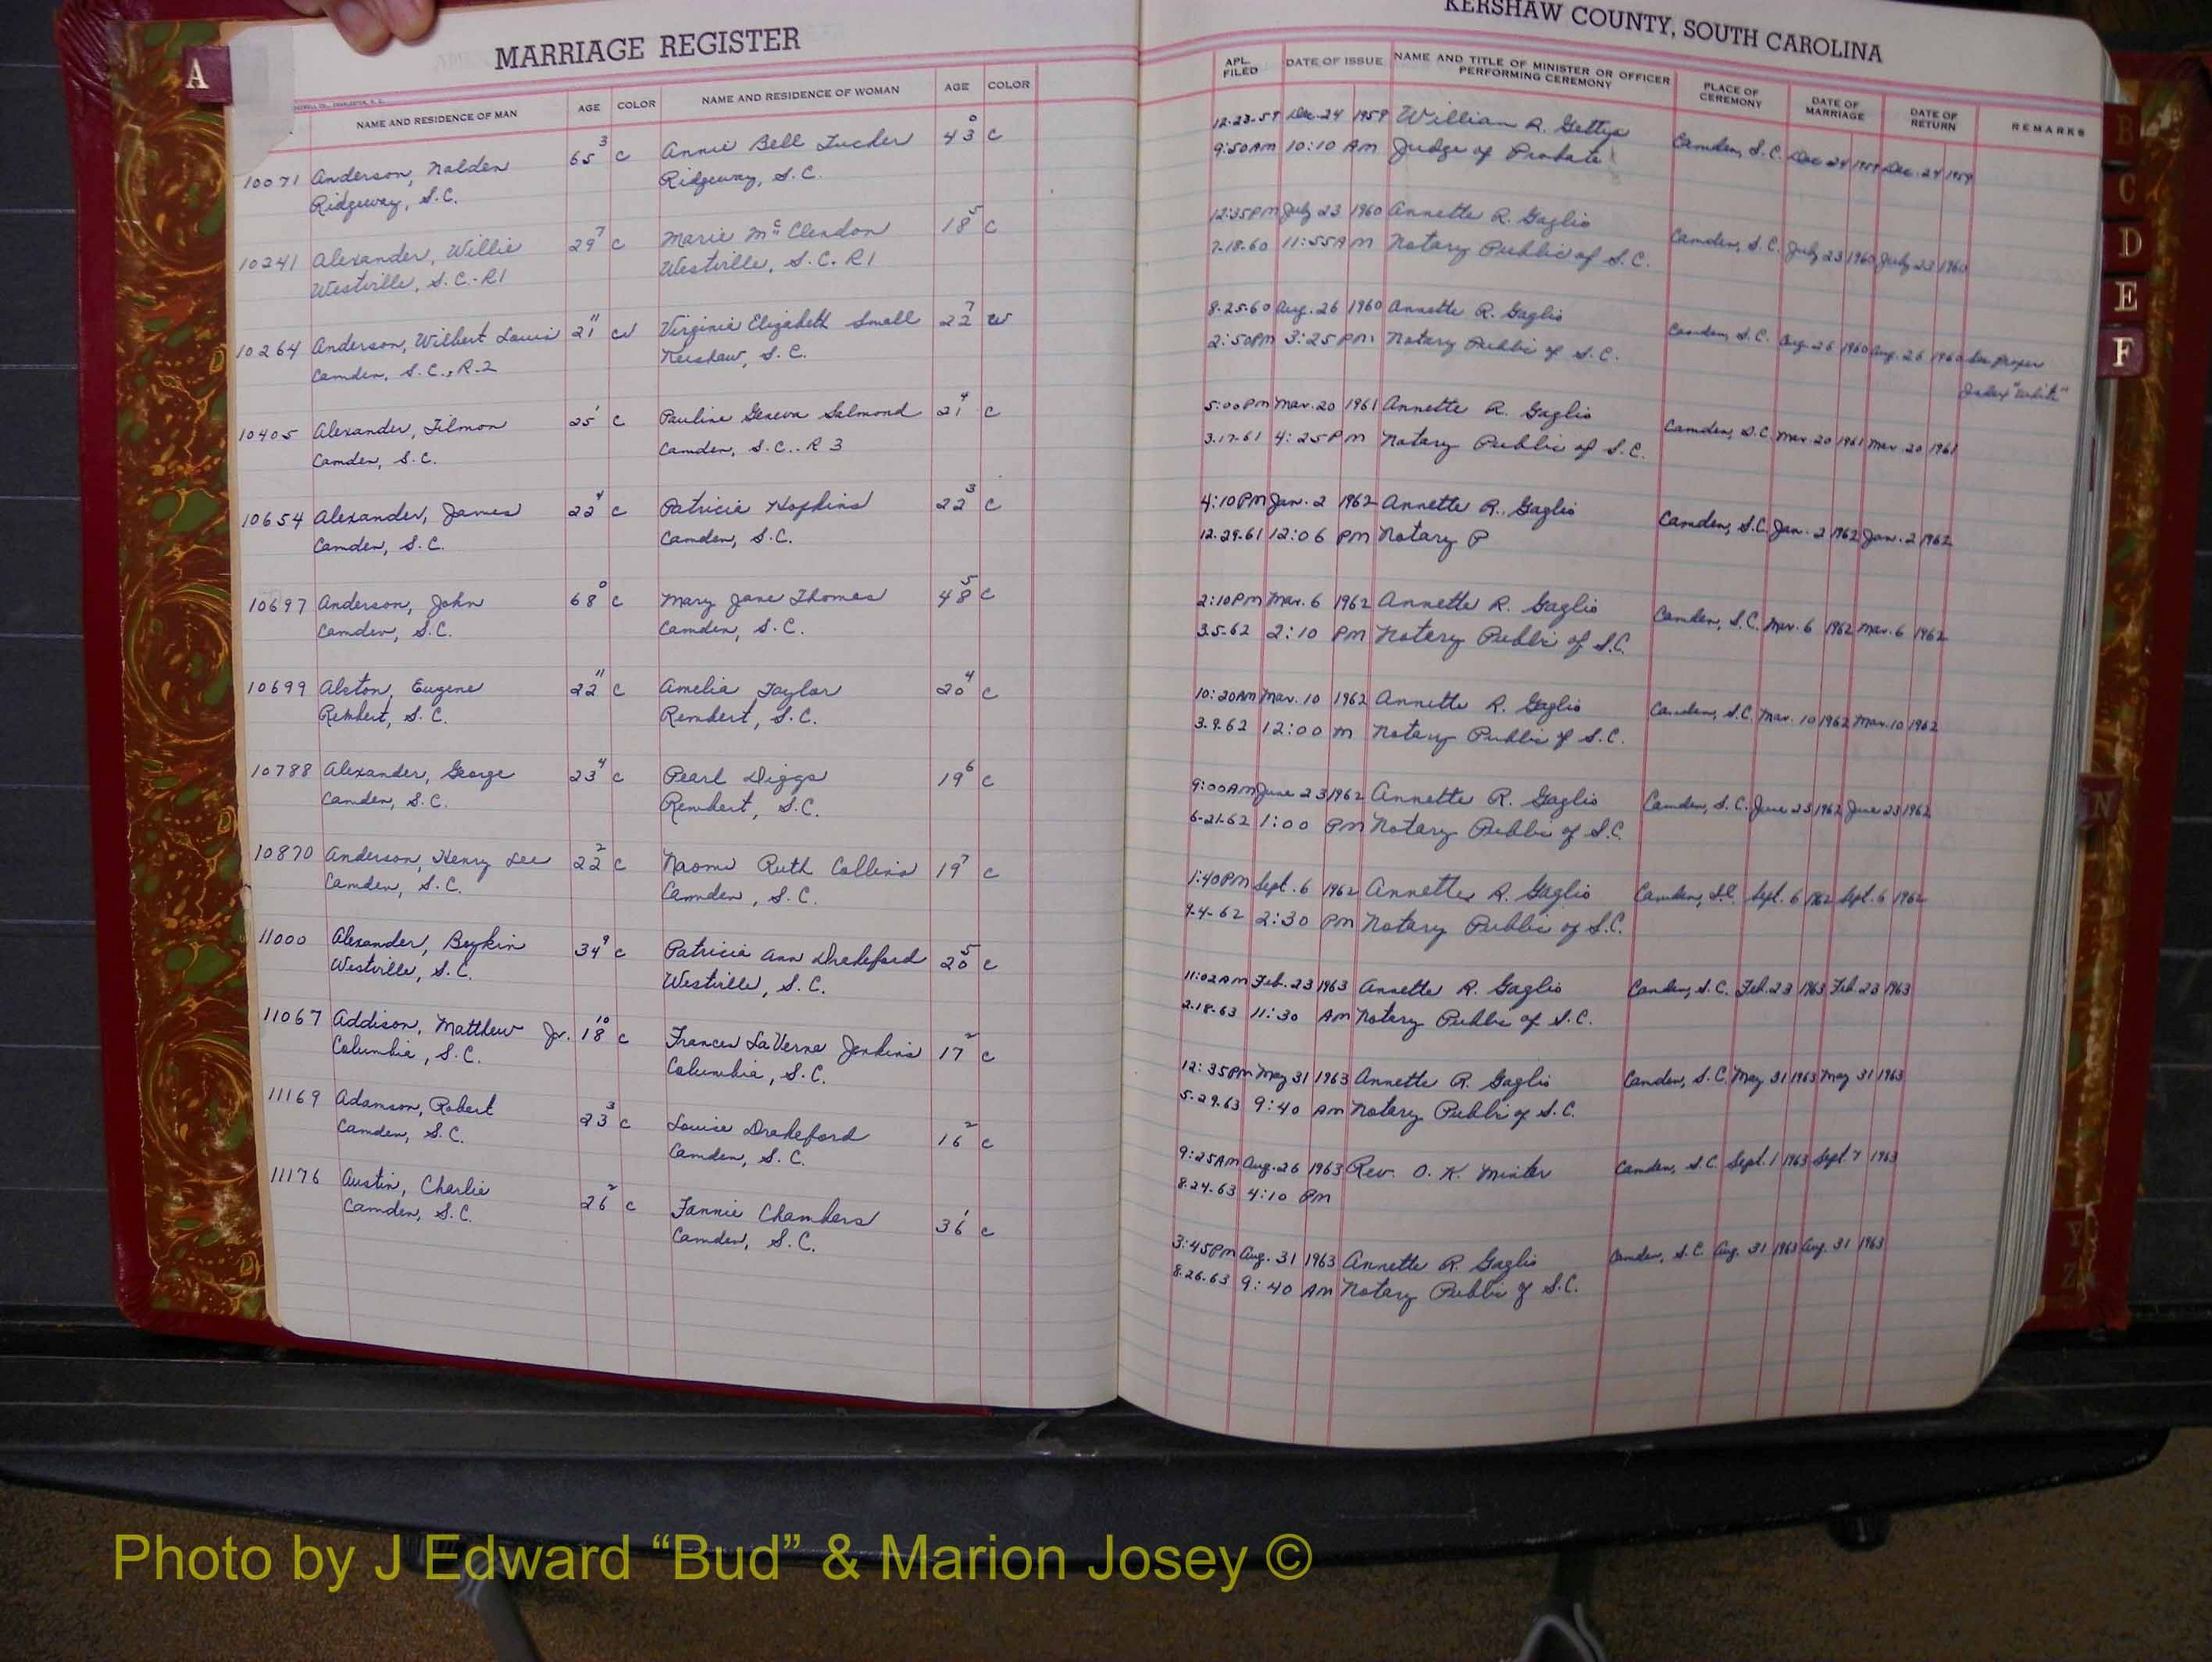 A
MARRIAGE REGISTER
NAME AND RESIDENCE OF MAN AGE COLOR NAME AND RESIDENCE OF WOMAN AGE COLOR
10071 Anderson, Nalden 65 3 C Annie Bell Tucker 43 0 C
Ridgeway, S.C. Ridgeway, S.C.
10241 Alexander, Willie 29 7 C Marie McClendon 18 5 C
Westville, S.C. R1 Westville, S.C. R1
10264 Anderson, Wilbert Louis 21 11 W Virginia Elizabeth Small 22 7 W
Camden, S.C., R-2 Kershaw, S.C.
10405 Alexander, Tilmon 25 1 C Pauline Geneva Salmond 21 4 C
Camden, S.C. Camden, S.C. R 3
10654 Alexander, James 22 4 C Patricia Hopkins 22 3 C
Camden, S.C. Camden, S.C.
10697 Anderson, John 68 0 C Mary Jane Thomas 48 5 C
Camden, S.C. Camden, S.C.
10699 Alston, Eugene 22 11 C Amelia Taylor 20 4 C
Rembert, S.C. Rembert, S.C.
10788 Alexander, George 23 4 C Pearl Diggs 19 6 C
Camden, S.C. Rembert, S.C.
10870 Anderson, Henry Lee 22 2 C Naomi Ruth Collins 19 7 C
Camden, S.C. Camden, S.C.
11000 Alexander, Boykin 34 9 C Patricia Ann Drakeford 20 5 C
Westville, S.C. Westville, S.C.
11067 Addison, Matthew Jr. 18 10 C Frances LaVerne Jenkins 17 2 C
Columbia, S.C. Columbia, S.C.
11169 Adamson, Robert 23 3 C Louise Drakeford 16 2 C
Camden, S.C. Camden, S.C.
11176 Austin, Charlie 26 2 C Fannie Chambers 36 1 C
Camden, S.C. Camden, S.C.
KERSHAW COUNTY, SOUTH CAROLINA
APL. FILED DATE OF ISSUE NAME AND TITLE OF MINISTER OR OFFICER PERFORMING CEREMONY PLACE OF CEREMONY DATE OF MARRIAGE DATE OF RETURN REMARKS
12-23-59 Dec. 24 1959 William R. Gettys Camden, S.C. Dec 24 1959 Dec. 24 1959
9:50AM 10:10 AM Judge of Probate
12:35PM July 23 1960 Annette R. Gaglio Camden, S.C. July 23 1960 July 23 1960
7-18-60 11:55AM Notary Public of S.C.
8-25-60 Aug. 26 1960 Annette R. Gaglio Camden, S.C. Aug. 26 1960 Aug. 26 1960 See proper
2:50PM 3:25PM Notary Public of S.C. Index "White"
5:00PM Mar. 20 1961 Annette R. Gaglio Camden, S.C. Mar. 20 1961 Mar. 20 1961
3-17-61 4:25PM Notary Public of S.C.
4:10PM Jan. 2 1962 Annette R. Gaglio Camden, S.C. Jan. 2 1962 Jan. 2 1962
12-29-61 12:06 PM Notary P
2:10PM Mar. 6 1962 Annette R. Gaglio Camden, S.C. Mar. 6 1962 Mar. 6 1962
3-5-62 2:10 PM Notary Public of S.C.
10:20AM Mar. 10 1962 Annette R. Gaglio Camden, S.C. Mar. 10 1962 Mar. 10 1962
3-9-62 12:00 M Notary Public of S.C.
9:00AM June 23 1962 Annette R. Gaglio Camden, S.C. June 23 1962 June 23 1962
6-21-62 1:00 PM Notary Public of S.C.
1:40PM Sept. 6 1962 Annette R. Gaglio Camden, S.C. Sept. 6 1962 Sept. 6 1962
9-4-62 2:30 PM Notary Public of S.C.
11:02AM Feb. 23 1963 Annette R. Gaglio Camden, S.C. Feb. 23 1963 Feb. 23 1963
2-18-63 11:30 AM Notary Public of S.C.
12:35PM May 31 1963 Annette R. Gaglio Camden, S.C. May 31 1963 May 31 1963
5-29-63 9:40 AM Notary Public of S.C.
9:25AM Aug. 26 1963 Rev. O. K. Minter Camden, S.C. Sept. 1 1963 Sept. 7 1963
8-24-63 4:10 PM
3:45PM Aug. 31 1963 Annette R. Gaglio Camden, S.C. Aug. 31 1963 Aug. 31 1963
8-26-63 9:40 AM Notary Public of S.C.
B
C
D
E
F
N
Y
Z
Photo by J Edward “Bud” & Marion Josey ©